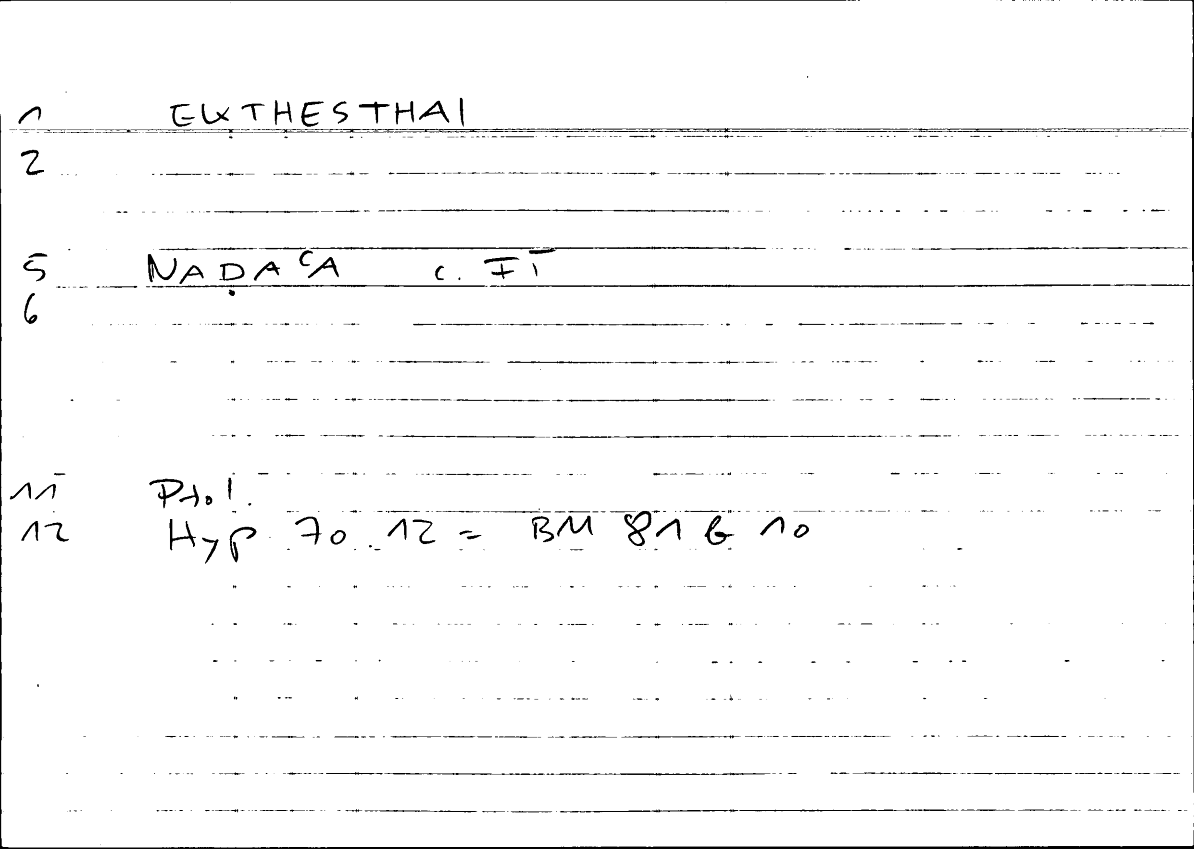 1 EKTHESTHAI
2
5 NAḌAʿA c. II
6
11 Ptol.
12 Hyp 70.12 = BM 81 b 10